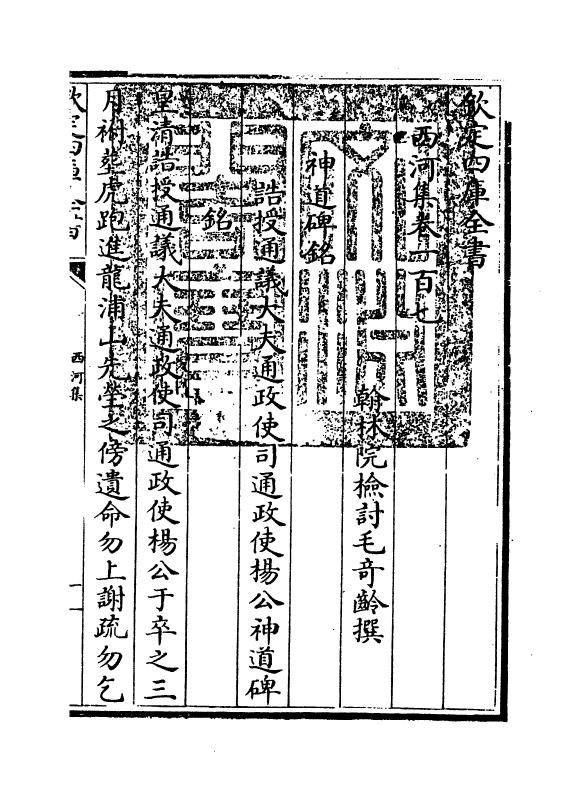 欽定四庫全書
西河集卷一百七
翰林院檢討毛奇齡撰
神道碑銘
誥授通議大夫通政使司通政使楊公神道碑
銘
皇清誥授通議大夫通政使司通政使楊公于卒之三
月祔塟虎跑進龍浦山先塋之傍遺命勿上謝疏勿乞
欽定四庫全書
西河集
一